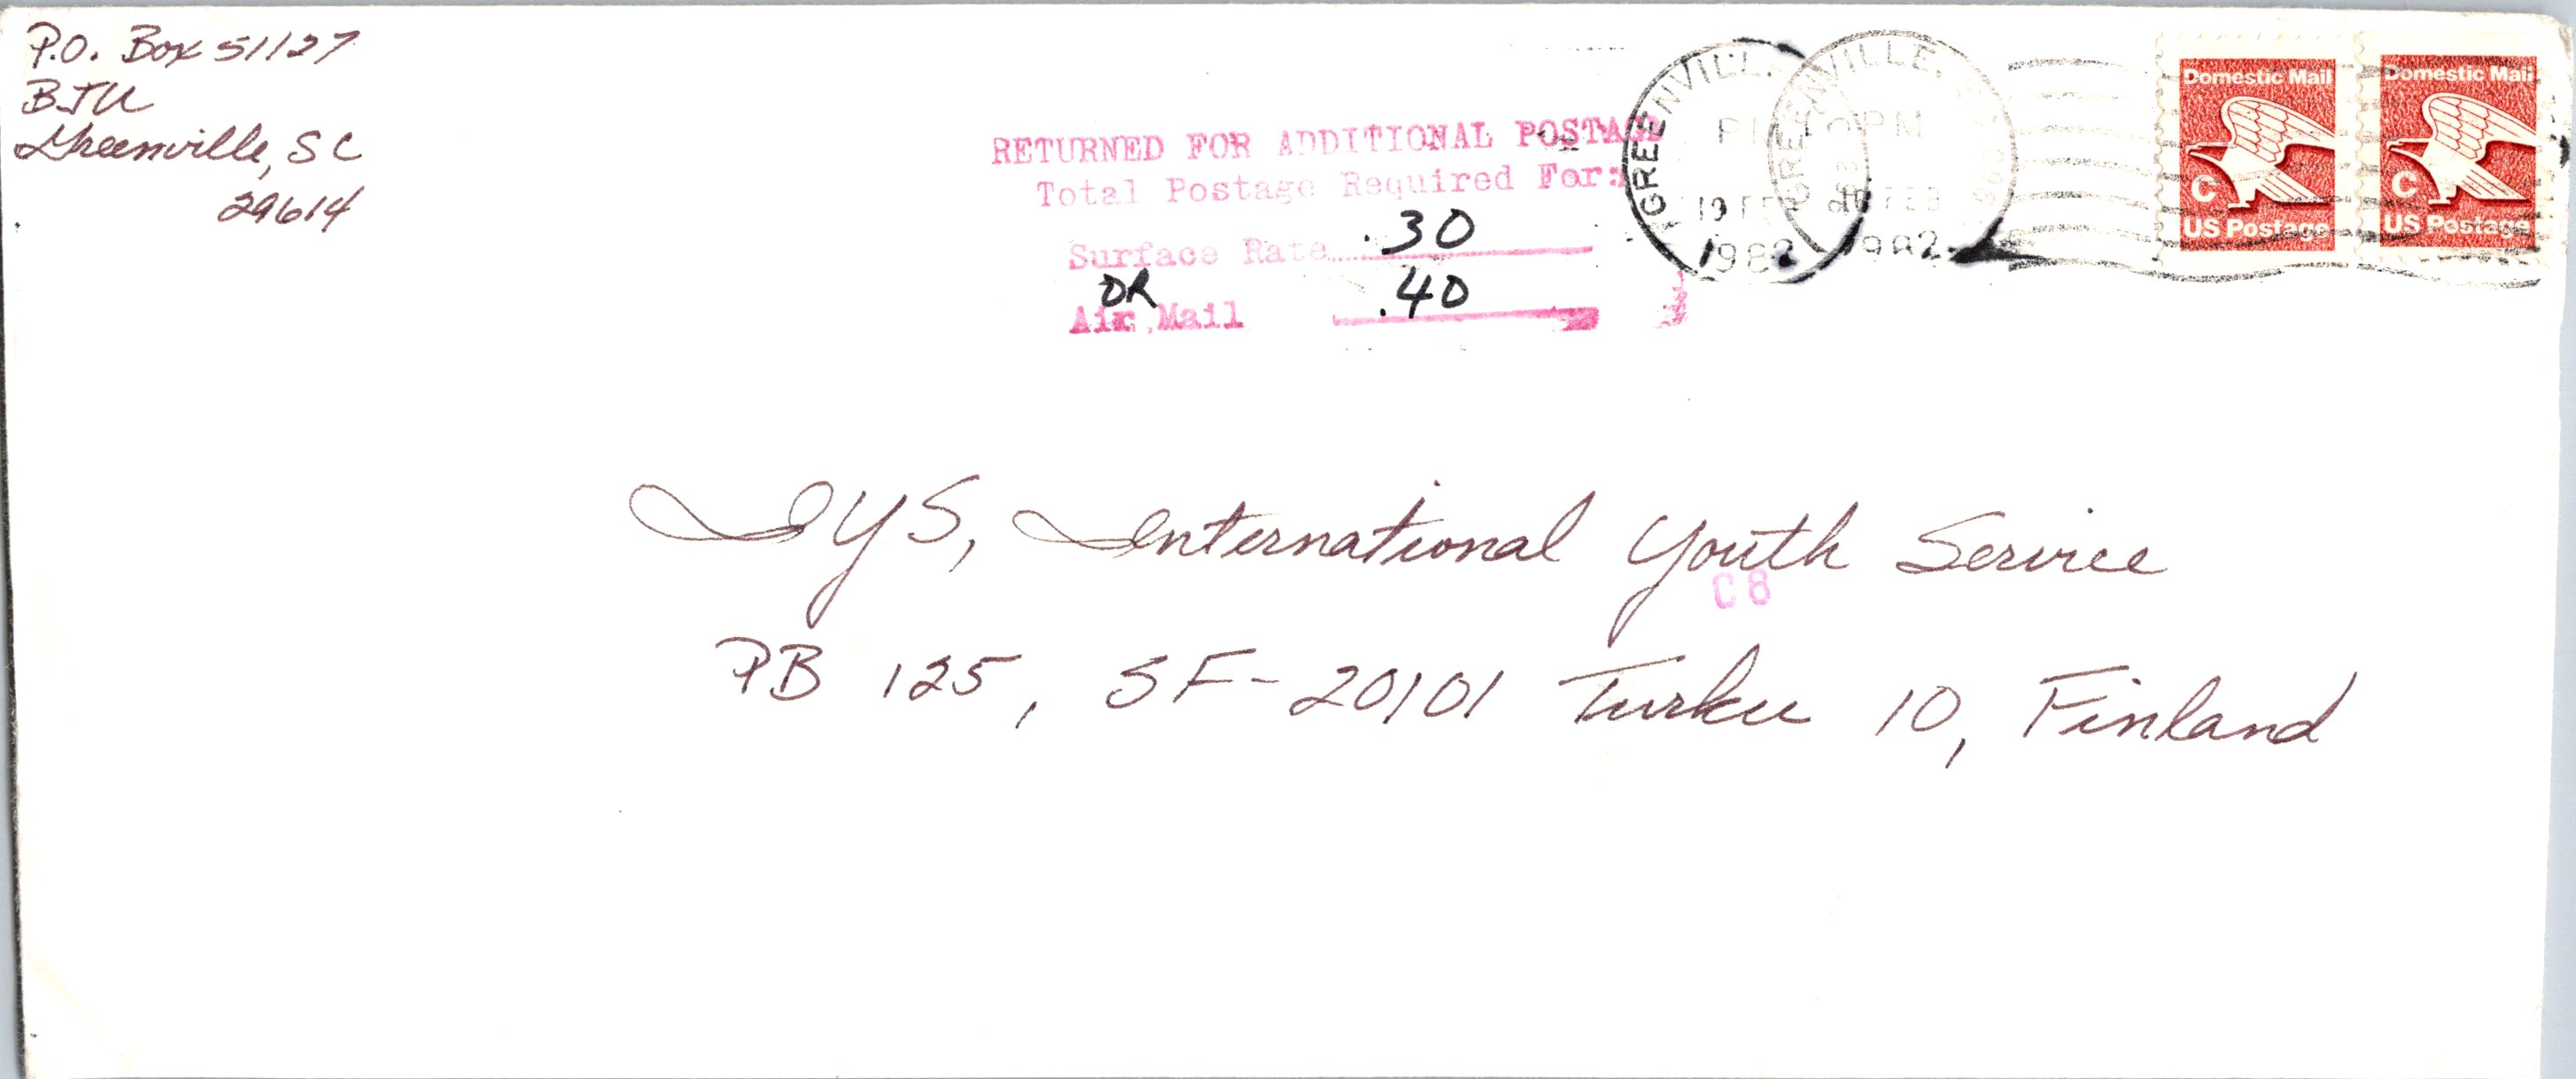 P.O. Box 51127
BJU
Greenville, SC
29614
RETURNED FOR ADDITIONAL POSTAGE
Total Postage Required For:
Surface Rate .30
OR
Air Mail .40
GREENVILLE,
PM
19 FEB
1982
GREENVILLE,
PM
FEB
1982
Domestic Mail
C
US Postage
Domestic Mail
C
US Postage
IYS, International Youth Service
C8
PB 125, SF-20101 Turku 10, Finland